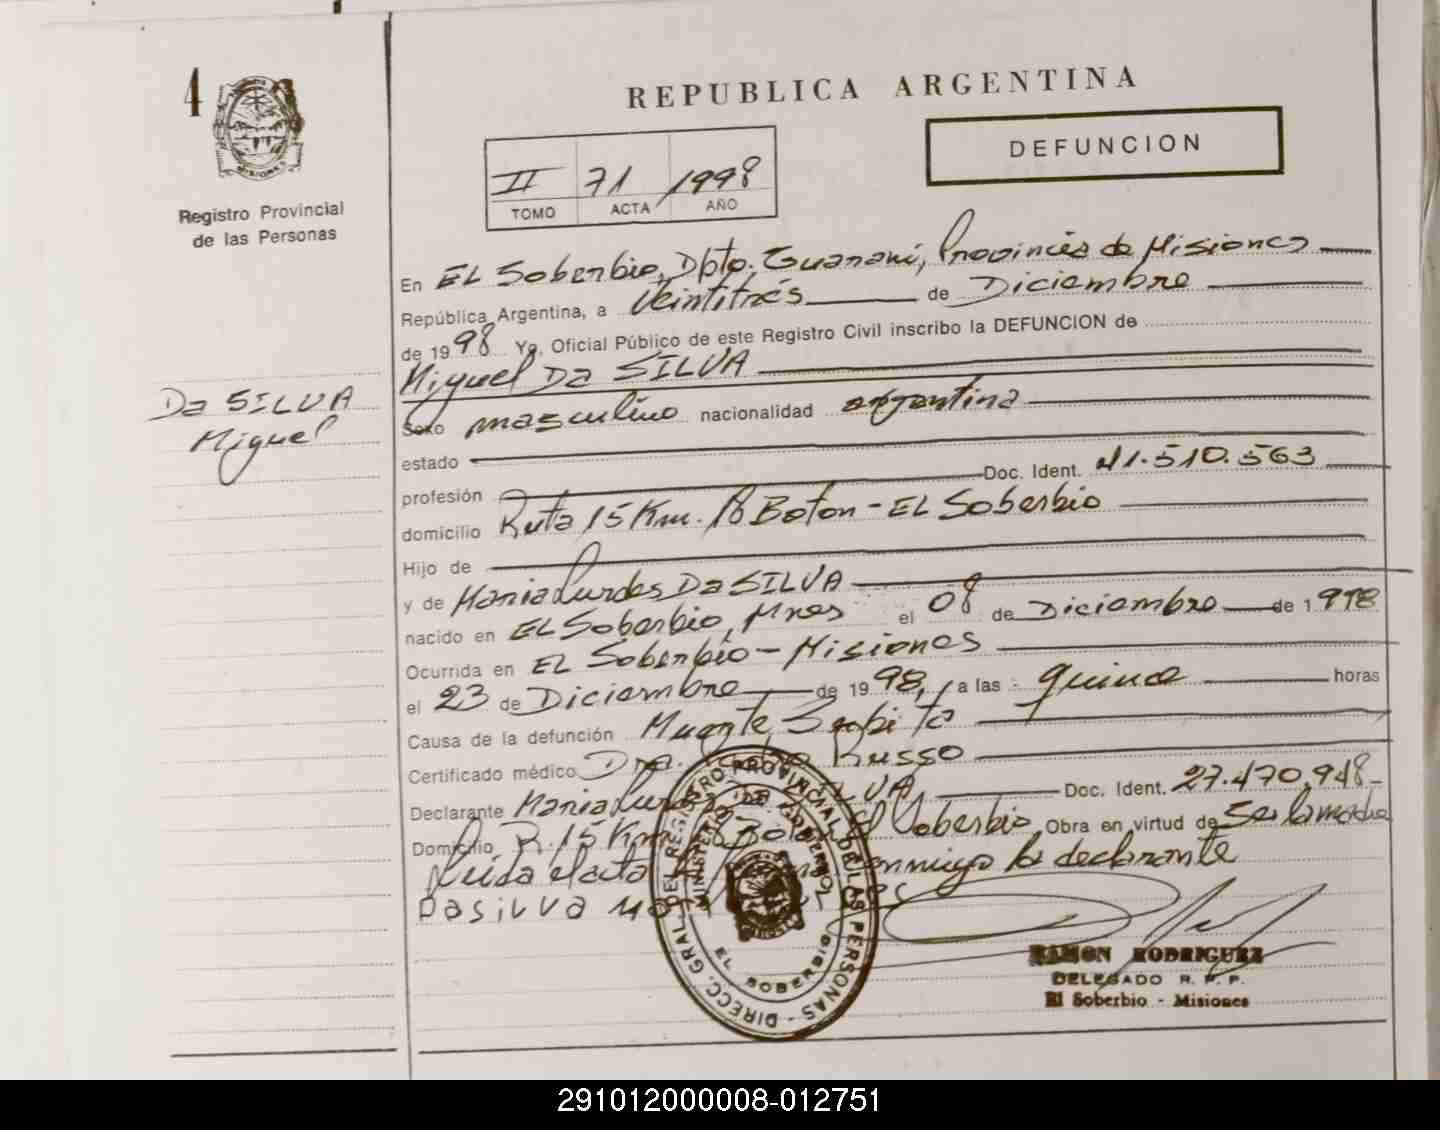 4
MISIONES
Registro Provincial
de las Personas
REPUBLICA ARGENTINA
DEFUNCION
II 71 1998
TOMO ACTA AÑO
En EL Soberbio, Dpto. Guaraní, Provincia de Misiones
República Argentina, a Veintitrés de Diciembre
de 1998 Yo, Oficial Público de este Registro Civil inscribo la DEFUNCION de
Miguel Da SILVA
Da SILVA
Miguel
Sexo masculino nacionalidad argentina
estado
profesión Doc. Ident. 41.510.563
domicilio Ruta 15 Km. 18 Boton - EL Soberbio
Hijo de
y de Maria Lurdes Da SILVA
nacido en EL Soberbio, Mnes el 08 de Diciembre de 1998
Ocurrida en EL Soberbio - Misiones
el 23 de Diciembre de 1998, a las quince horas
Causa de la defunción Muerte Subita
Certificado médico Dra. Russo
Declarante Maria Lurdes Da SILVA Doc. Ident. 27.470.948
Domicilio R. 15 Km 18 Boton El Soberbio Obra en virtud de Ser la madre
Leida el acta conmigo la declarante
Dasilva
DIRECC. GRAL. DEL REGISTRO PROVINCIAL DE LAS PERSONAS
MINISTERIO DE GOBIERNO
EL SOBERBIO
RAMON RODRIGUEZ
DELEGADO R. P. P.
El Soberbio - Misiones
291012000008-012751